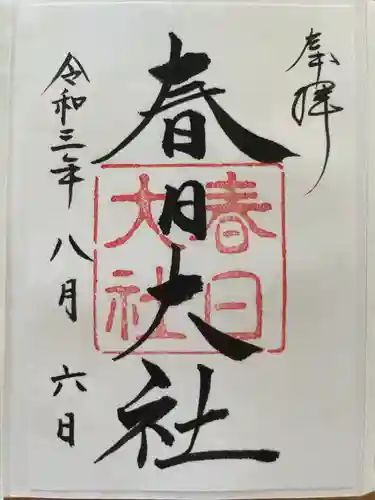 奉拝
春日大社
春日
大社
令和三年八月六日